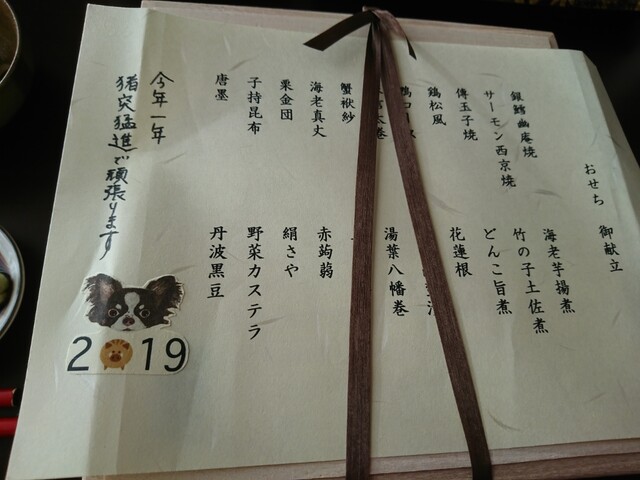 おせち 御献立
銀鱈幽庵焼
サーモン西京焼
傳玉子焼
鶏松風
蟹袱紗
海老真丈
栗金団
子持昆布
唐墨
海老芋揚煮
竹の子土佐煮
どんこ旨煮
花蓮根
湯葉八幡巻
赤蒟蒻
絹さや
野菜カステラ
丹波黒豆
今年一年
猪突猛進で頑張ります
2019